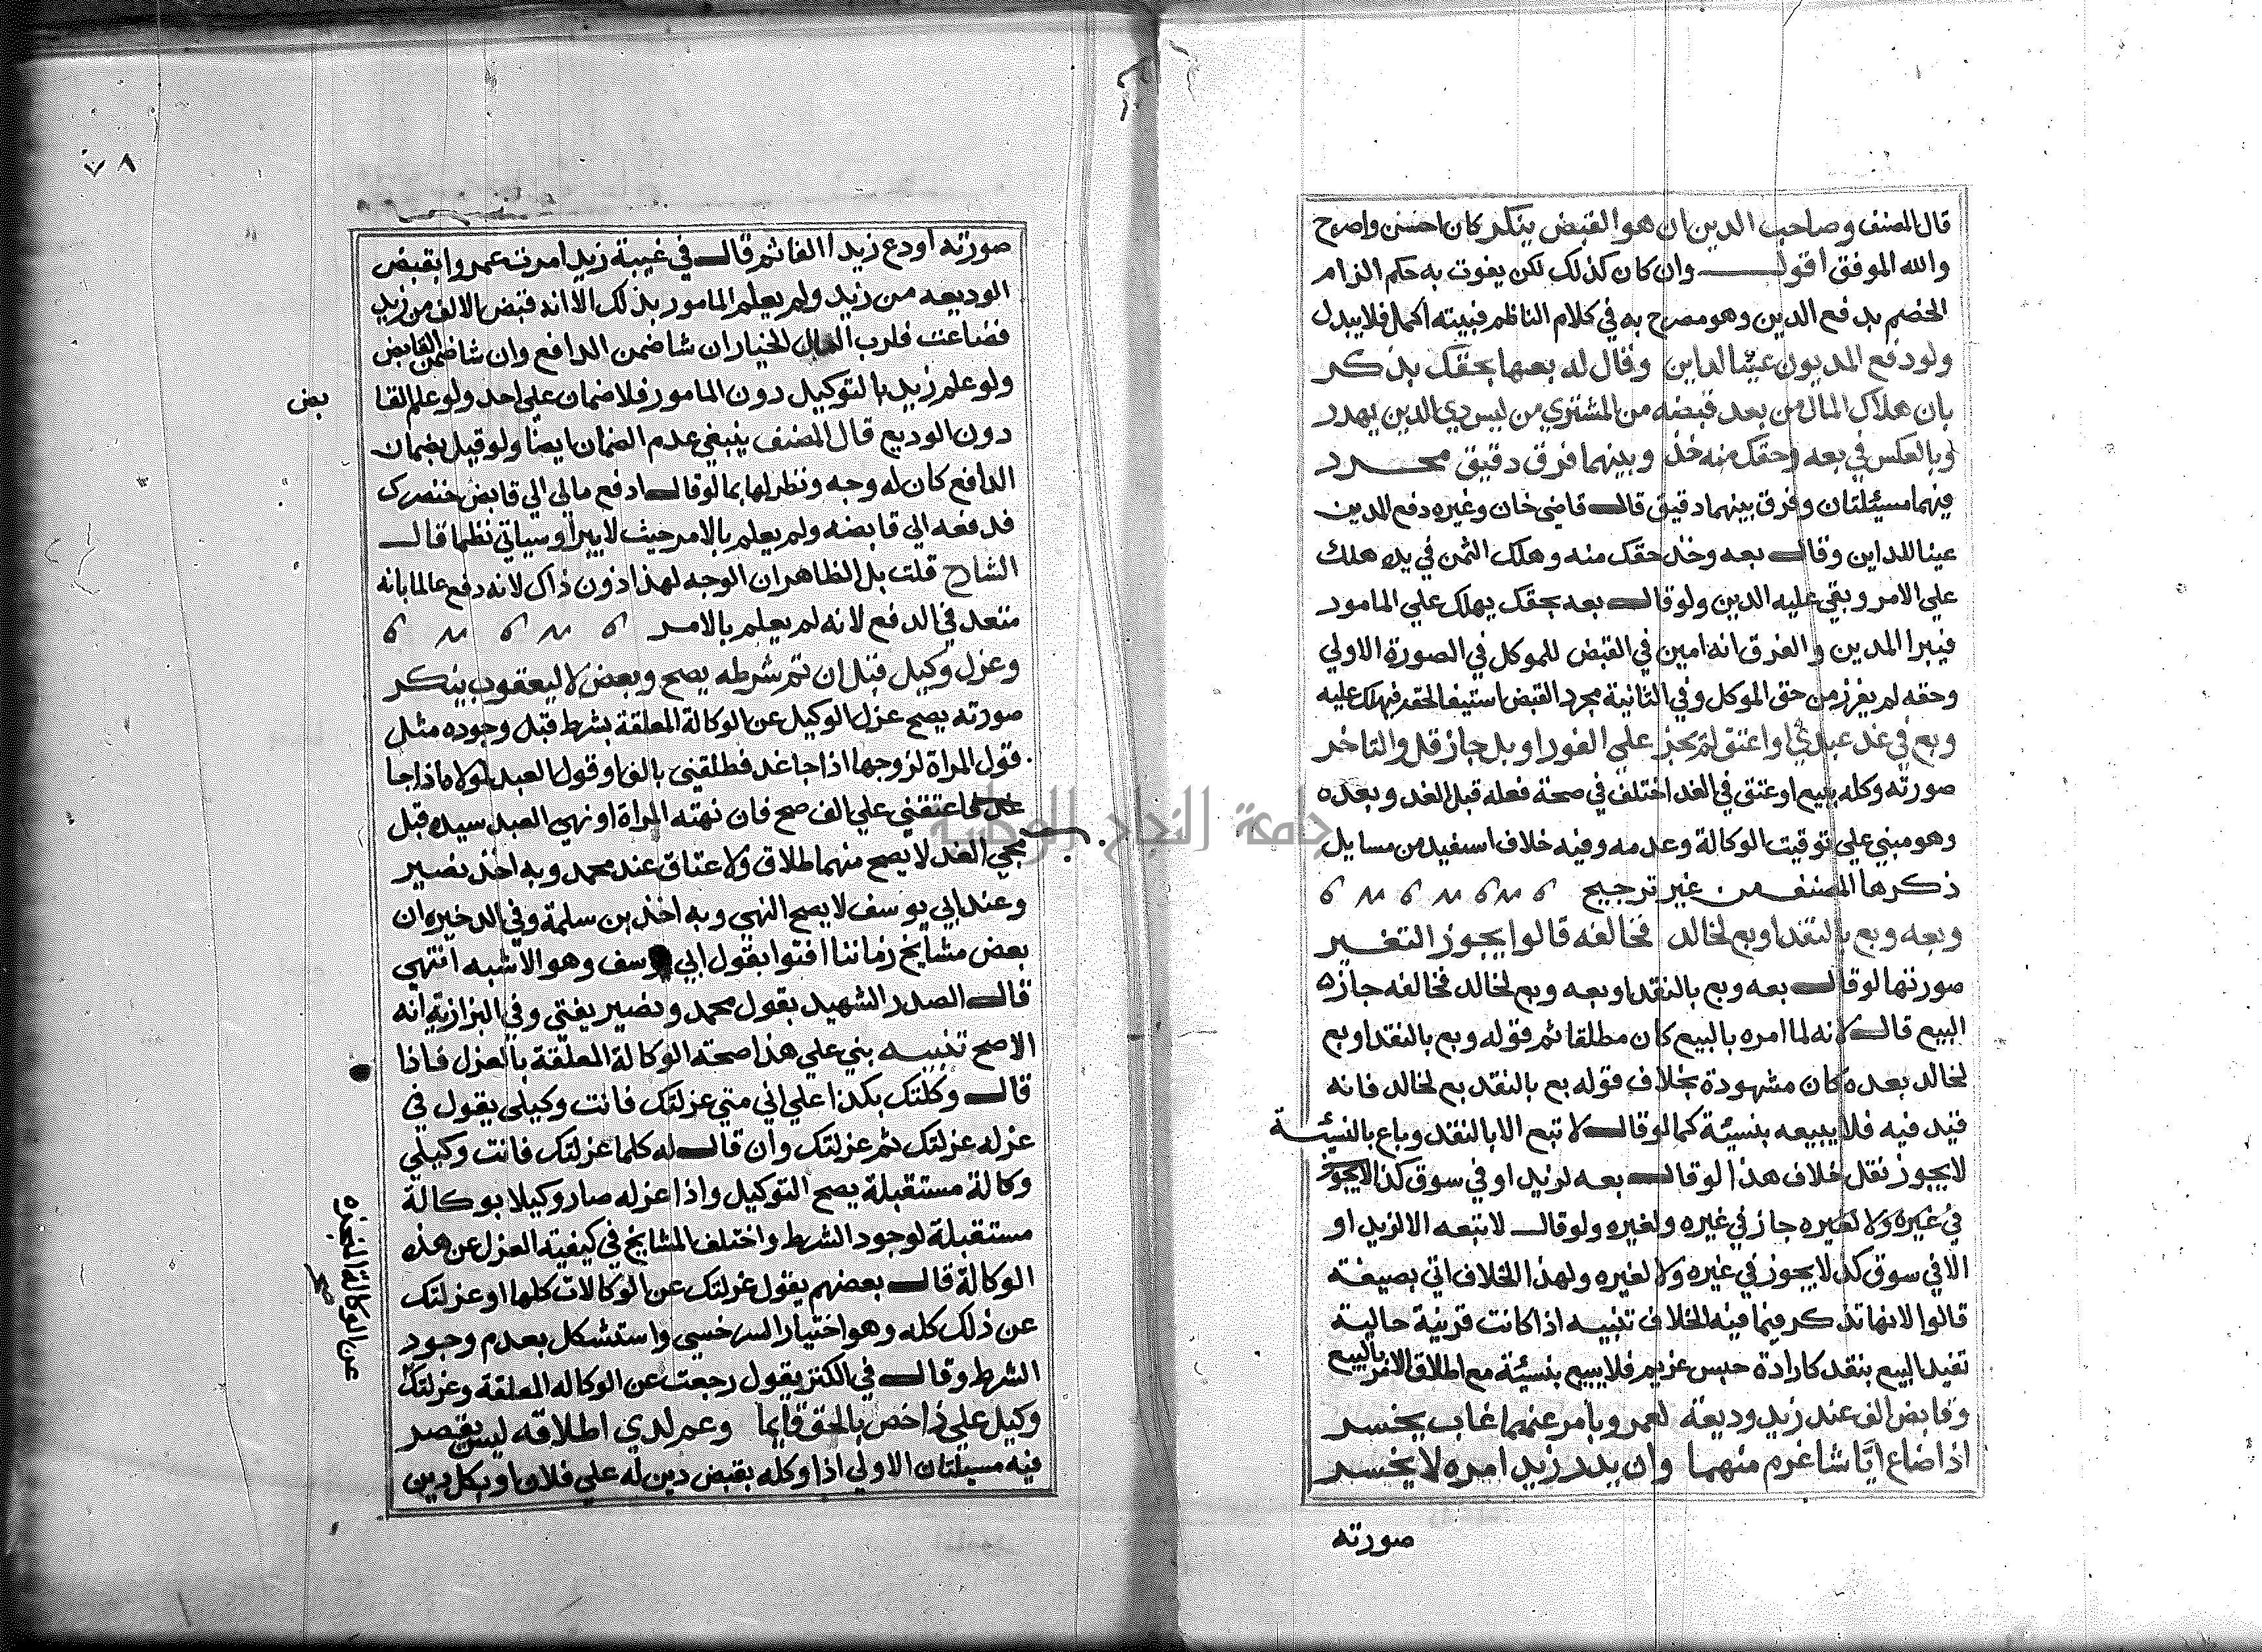 قال المصنف وصاحب الدين ان هو القبض ينكر كان احسن واصرح
والله الموفق اقول وان كان كذلك لكن يفوت به حكم الزام
الخصم بدفع الدين وهو مصرح به في كلام الناظم فبيته اكمل فلا يبدل
ولو دفع المديون عينا لداين وقال له بعها بحقك يذكر
بان هلاك المال من بعد قبضه من المشتري من ليس ذي الدين يهدر
وبالعكس في بعه وحقك منه خذ وبينهما فرق دقيق محرر
فيهما مسيئلتان وفرق بينهما دقيق قال قاضي خان وغيره دفع المدين
عينا للداين وقال بعه وخذ حقك منه وهلك الثمن في يده هلك
علي الامر وبقي عليه الدين ولو قال بعه بحقك يهلك علي المامور
فيبرا المدين والفرق انه امين في القبض للموكل في الصورة الاولي
وحقه لم يفرز من حق الموكل وفي الثانية مجرد القبض استيفا لحقه فيهلك عليه
وبع في غد عبدي او اعتق لم يجز علي الفور او بل جاز قل والتاخر
صورته وكله ببيع او عتق في الغد اختلف في صحة فعله قبل الغد وبعده
وهو مبني علي توقيت الوكالة وعدمه وفيه خلاف استفيد من مسايل
ذكرها المصنف من غير ترجيح
وبعه وبع بالنقد او بع لخالد فخالفه قالوا يجوز التغير
صورتها لو قال بعه وبع بالنقد او بعه وبع لخالد فخالفه جازه
البيع قال لانه لما امره بالبيع كان مطلقا ثم قوله وبع بالنقد او بع
لخالد بعده كان مشهودة بخلاف قوله بع بالنقد بع لخالد فانه
قيد فيه فلا يبيعه بنسيئة كما لو قال لا تبع الا بالنقد وباع بالنسيئة
لا يجوز نقل خلاف هذا لو قال بعه لزيد او في سوق كذا لا يجوز
في غيره ولا لغيره جاز في غيره ولغيره ولو قال لا تبعه الا لزيد او
الا في سوق كذ لا يجوز في غيره ولا لغيره ولهذا الخلاف اتي بصيغة
قالوا لانها تذكر فيما فيه الخلاف تنبيه اذا كانت قرينة حالية
تفيد البيع بنقد كارادة حبس غريم فلا يبيع بنسيئة مع اطلاق الامر بالبيع
وقابض الف عند زيد وديعة لعمرو بامر عنهما غاب يخسر
اذا ضاع ايا شا غرم منهما وان يدر زيد امره لا يخسر
صورته
٧٨
صورته اودع زيدا الفا ثم قال في غيبة زيد امرت عمروا بقبض
الوديعه من زيد ولم يعلم المامور بذلك الا انه قبض الالف من زيد
فضاعت فلرب المال الخيار ان شا ضمن الدافع وان شا ضمن القابض
ولو علم زيد بالتوكيل دون المامور فلا ضمان علي احد ولو علم القا
بض
دون الوديع قال المصنف ينبغي عدم الضمان ايضا ولو قيل بضمان
الدافع كان له وجه ونظر لها بما لو قال ادفع مالي الي قابض خنصرك
فدفعه الي قابضه ولم يعلم بالامر حيث لا يبرا وسياتي نظما قال
الشارح قلت بل الظاهر ان الوجه لهذا دون ذاك لانه دفع عالما بانه
متعد في الدفع لانه لم يعلم بالامر
وعزل وكيل قبل ان تم شرطه يصح وبعض لا ليعقوب ينكر
صورته يصح عزل الوكيل عن الوكالة المعلقة بشرط قبل وجوده مثل
قول المراة لزوجها اذا جا غد فطلقني بالف او قول العبد لمولاه اذا جا
غد فاعتقني علي الف صح فان نهته المراة او نهي العبد سيده قبل
مجي الغد لا يصح منهما طلاق ولا عتاق عند محمد وبه اخذ نصير
وعند ابي يوسف لا يصح النهي وبه اخذ بن سلمة وفي الدخيره ان
بعض مشايخ زماننا افتوا بقول ابي يوسف وهو الاشبه انتهي
قال الصدر الشهيد بقول محمد ونصير يفتي وفي البزازية انه
الاصح تنبيه بني علي هذا صحة الوكالة المعلقة بالعزل فاذا
قال وكلتك بكذا علي اني متي عزلتك فانت وكيلي يقول في
عزله عزلتك ثم عزلتك وان قال له كلما عزلتك فانت وكيلي
وكالة مستقبلة يصح التوكيل واذا عزله صار وكيلا بوكالة
مستقبلة لوجود الشرط واختلف المشايخ في كيفية العزل عن هذه
الوكالة قال بعضهم يقول عزلتك عن الوكالات كلها او عزلتك
عن ذلك كله وهو اختيار السرخسي واستشكل بعدم وجود
الشرط وقال في الكنز يقول رجعت عن الوكاله المعلقة وعزلتك
عن الوكالة المنجزه
صح
وكيل علي ذا خص بالحق قايما وعم لدي اطلاقه ليس يقصر
فيه مسيلتان الاولي اذا وكله بقبض دين له علي فلان او بكل دين
جامعة النجاح الوطنية